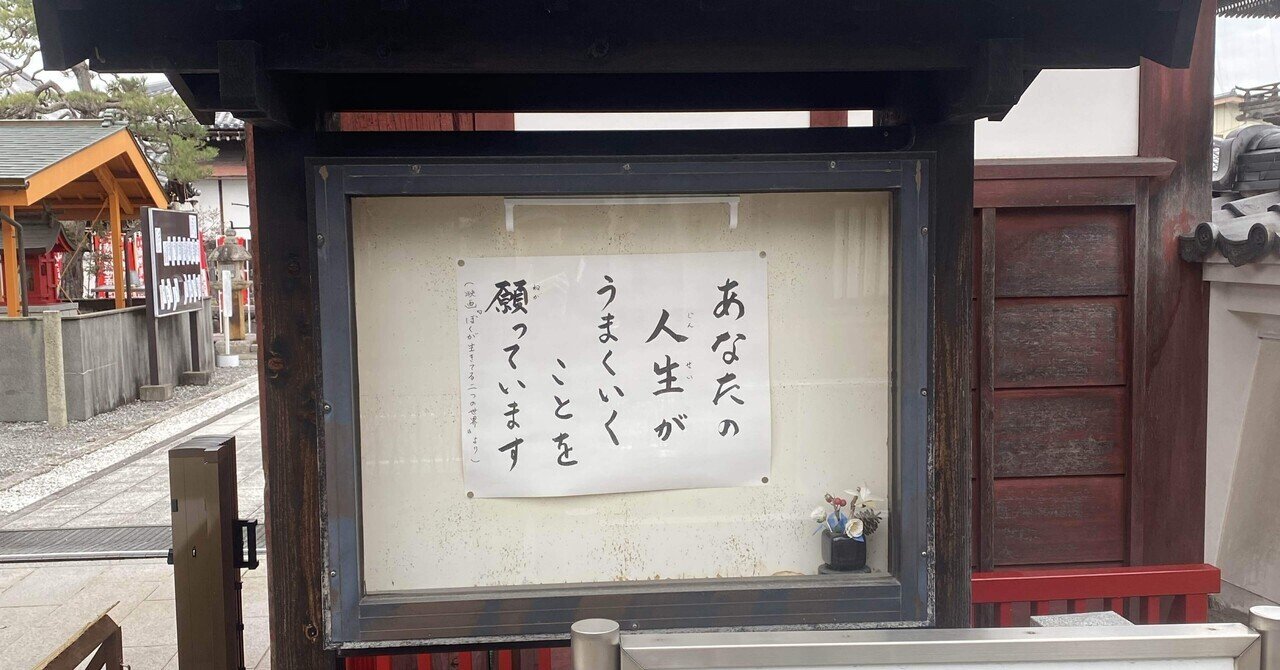 あなたの
人生が
じんせい
うまくいく
ことを
願っています
ねが
(映画『ぼくが生きてる二つの世界』より)